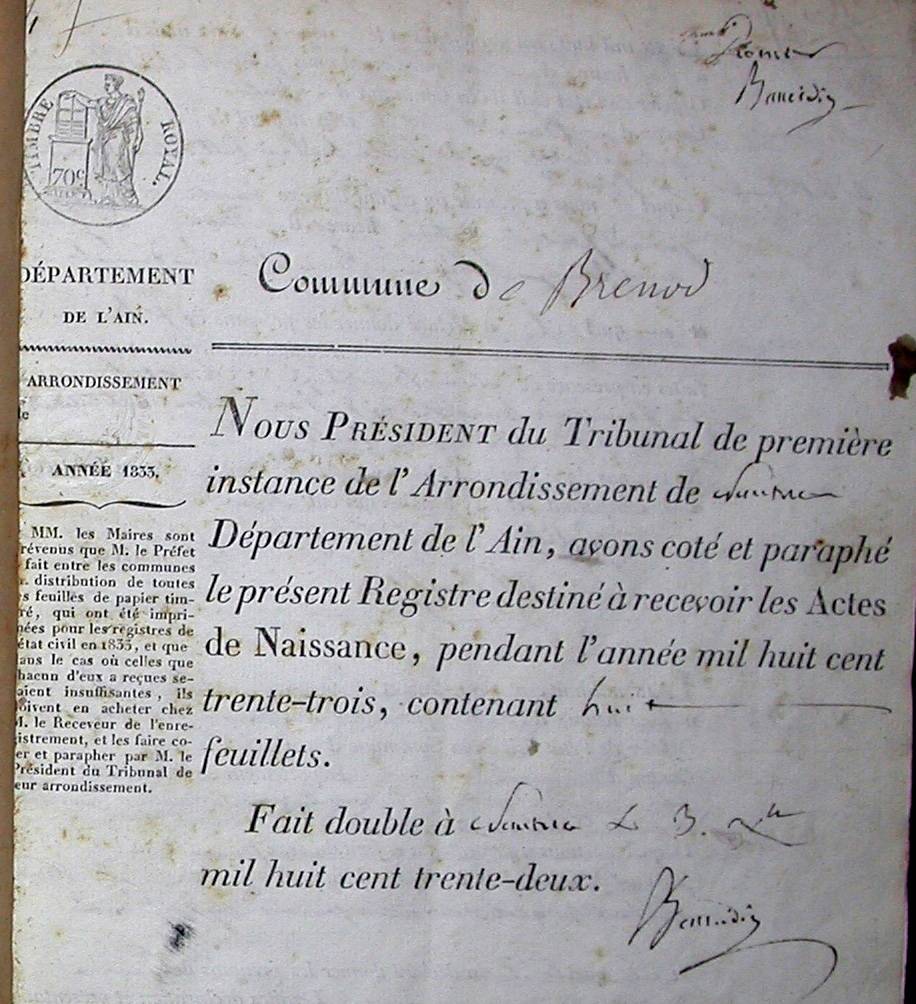 TIMBRE ROYAL.
70c
DÉPARTEMENT
DE L'AIN.
ARRONDISSEMENT
ANNÉE 1833.
MM. les Maires sont
révenus que M. le Préfet
fait entre les communes
distribution de toutes
s feuilles de papier tim-
ré, qui ont été impri-
ées pour les registres de
état civil en 1833, et que
ans le cas où celles que
hacun d'eux a reçues se-
aient insuffisantes, ils
oivent en acheter chez
M. le Receveur de l'enre-
istrement, et les faire co-
er et parapher par M. le
Président du Tribunal de
eur arrondissement.
Commune de Brenod
NOUS PRÉSIDENT du Tribunal de première
instance de l'Arrondissement de Nantua
Département de l'Ain, avons coté et paraphé
le présent Registre destiné à recevoir les Actes
de Naissance, pendant l'année mil huit cent
trente-trois, contenant huit
feuillets.
Fait double à Nantua le 3.
mil huit cent trente-deux.